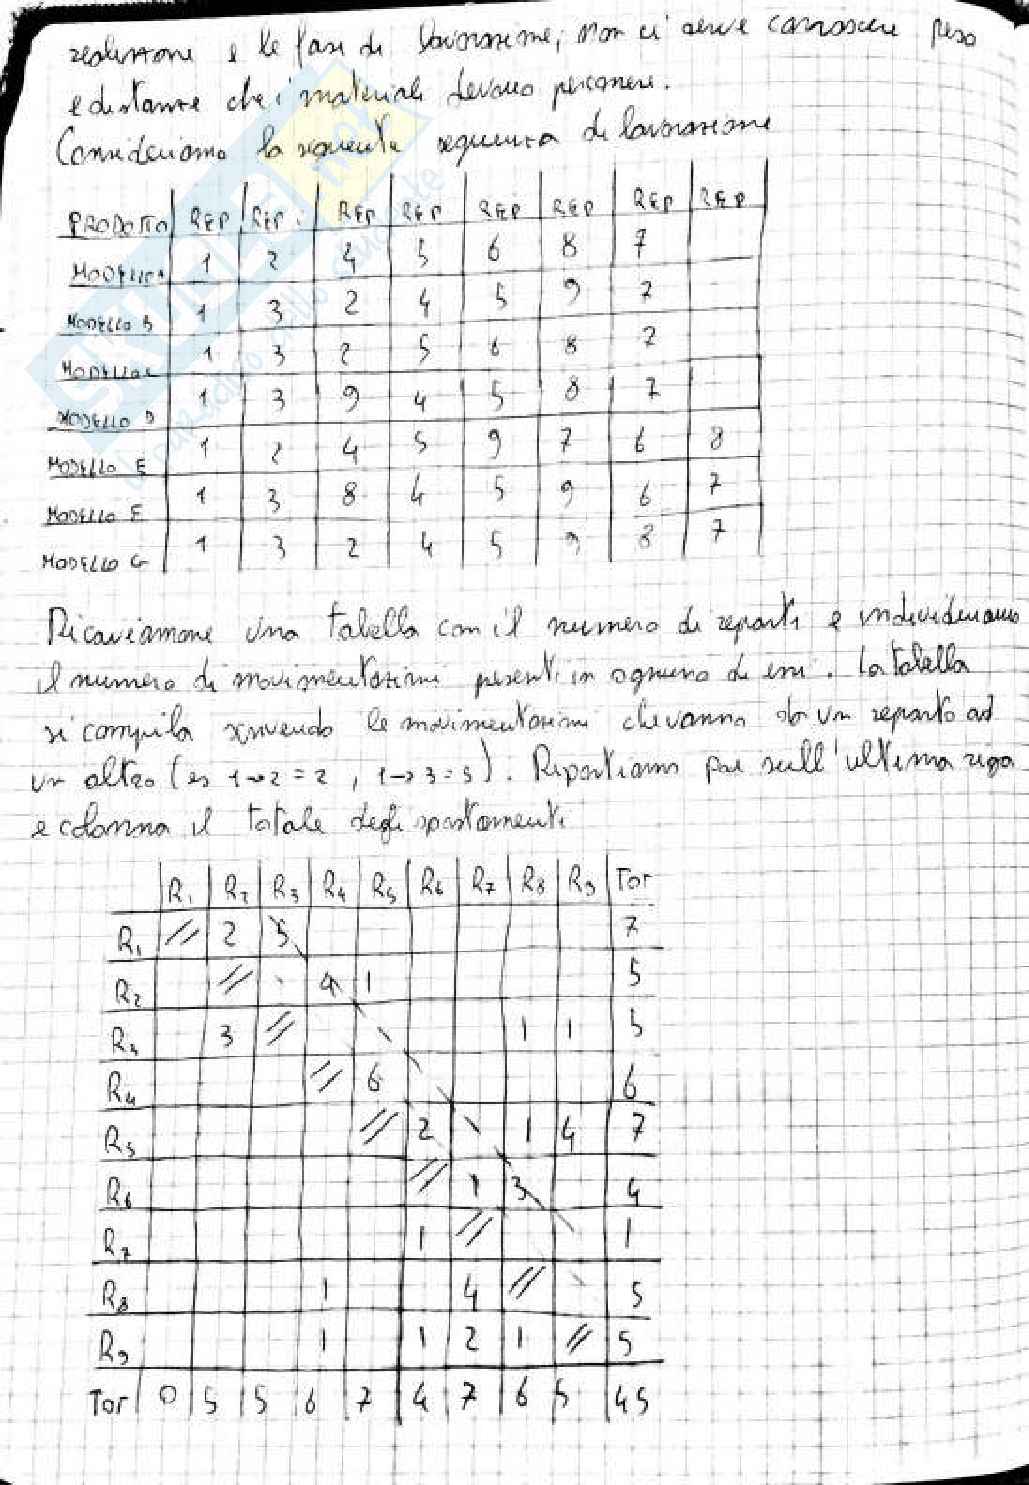 realizzazione e le fasi di lavorazione, non ci serve conoscere peso
e distanze che i materiali devono percorrere.
Consideriamo la seguente sequenza di lavorazione
PRODOTTO REP REP REP REP REP REP REP REP
MODELLO A 1 2 4 5 6 8 7
MODELLO B 1 3 2 4 5 9 7
MODELLO C 1 3 2 5 6 8 7
MODELLO D 1 3 9 4 5 8 7
MODELLO E 1 2 4 5 9 7 6 8
MODELLO F 1 3 8 4 5 9 6 7
MODELLO G 1 3 2 4 5 9 8 7
Ricaviamone una tabella con il numero di reparti e individuiamo
il numero di movimentazioni presenti in ognuno di essi. La tabella
si compila scrivendo le movimentazioni che vanno da un reparto ad
un altro (es 1→2 = 2, 1→3 = 5). Riportiamo poi sull'ultima riga
e colonna il totale degli spostamenti
R1 R2 R3 R4 R5 R6 R7 R8 R9 TOT
R1 // 2 5 7
R2 // 4 1 5
R3 3 // 1 1 5
R4 // 6 6
R5 // 2 1 4 7
R6 // 1 3 4
R7 1 // 1
R8 1 4 // 5
R9 1 1 2 1 // 5
TOT 0 5 5 6 7 4 7 6 5 45